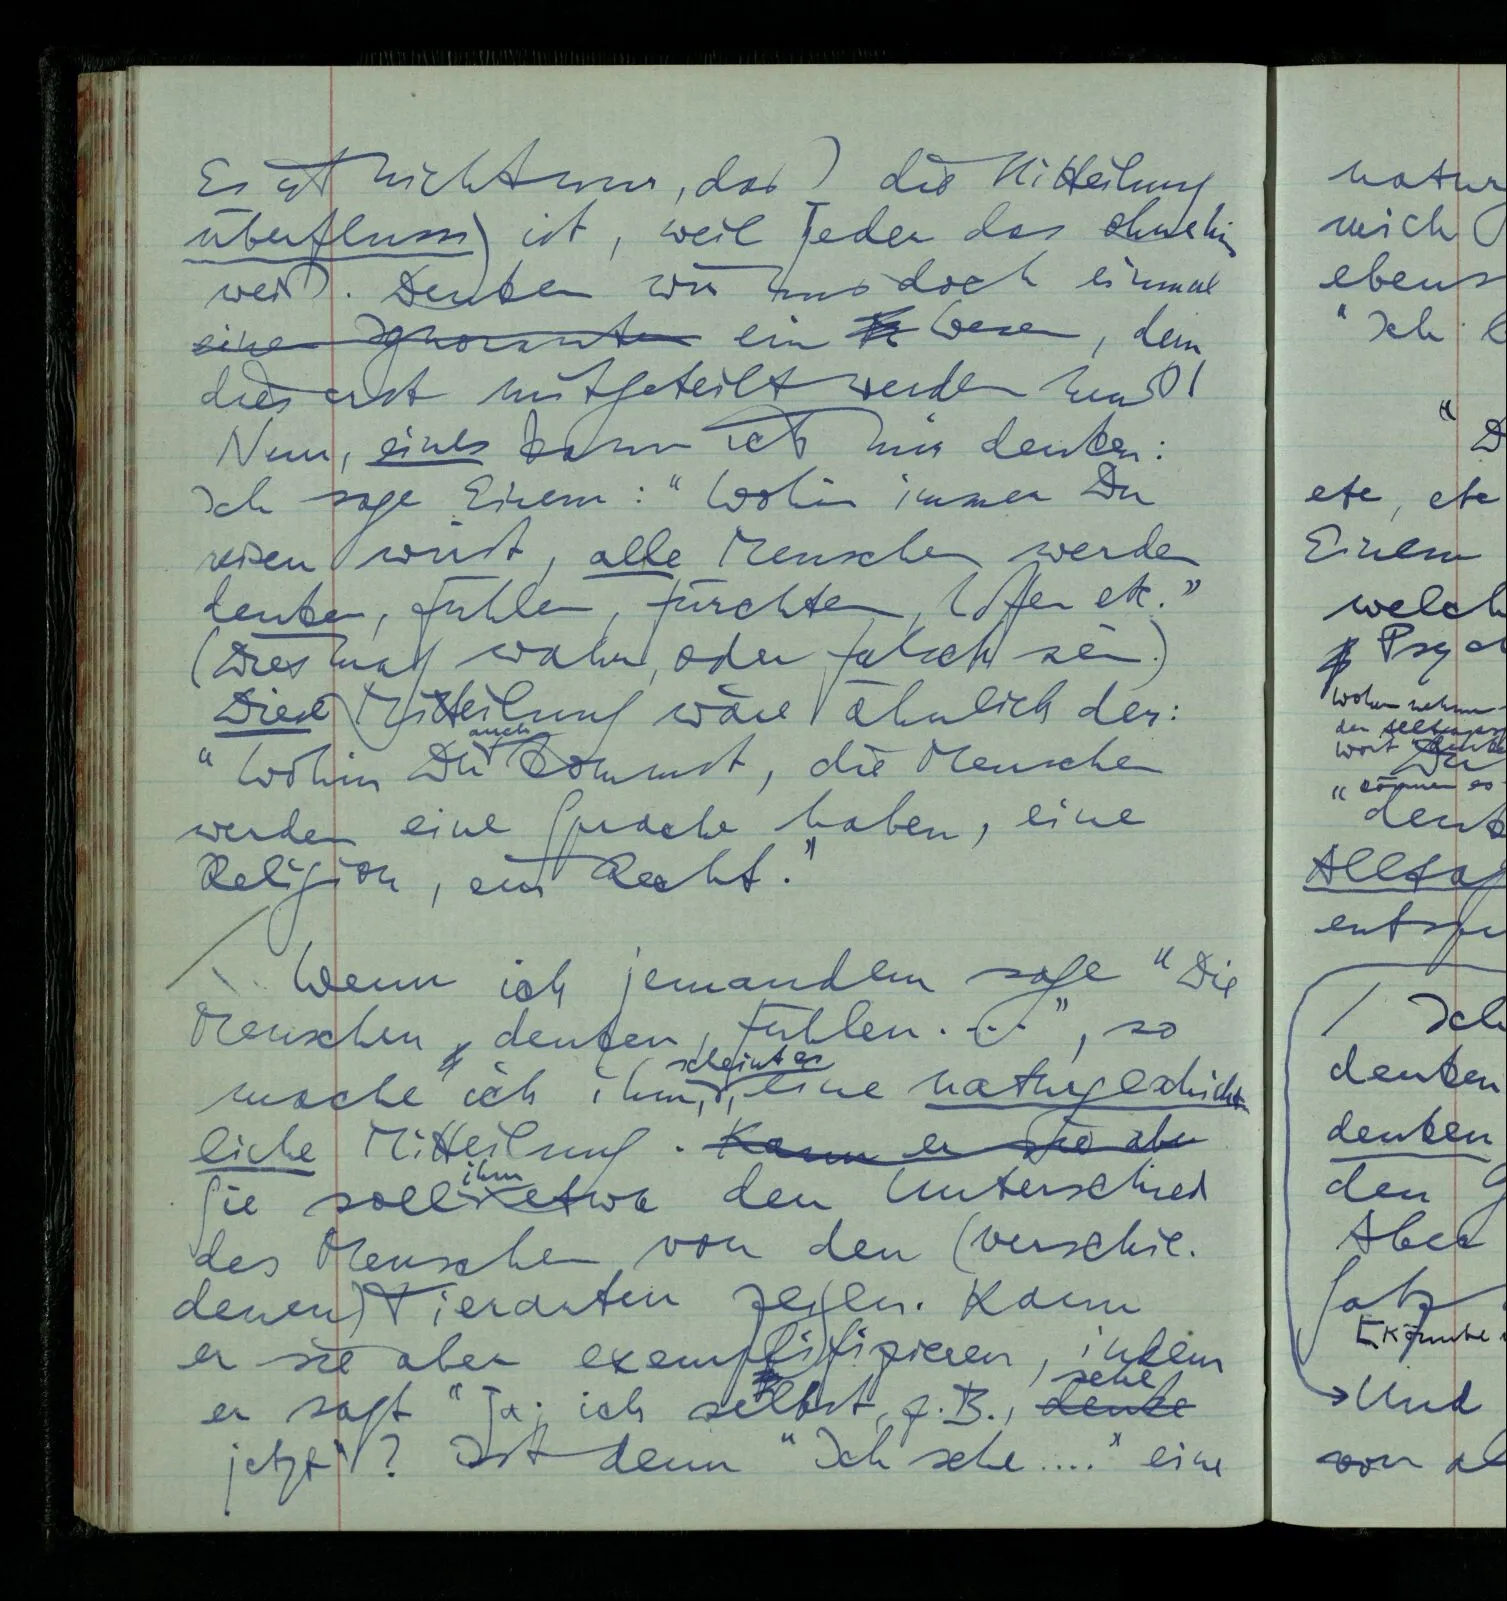 Es ist nicht nur, daß die Mitteilung
überflüssig ist, weil jeder das ohnehin
weiß. Denken wir uns doch einmal
einen Ignoranten ein Wesen, dem
dies erst mitgeteilt werden muß!
Nun, eines kann ich mir denken:
Ich sage Einem: "Wohin immer Du
reisen wirst, alle Menschen werden
denken, fühlen, fürchten, hoffen etc."
(Dies mag wahr, oder falsch sein.)
Diese Mitteilung wäre ähnlich der:
auch
"Wohin Du kommst, die Menschen
werden eine Sprache haben, eine
Religion, ein Recht."
/ \ Wenn ich jemandem sage "Die
Menschen denken, fühlen . . . ", so
scheint es
mache ich ihm, , eine naturgeschicht
liche Mitteilung. Kann er sie aber
ihm
Sie soll etwa den Unterschied
des Menschen von den (verschie-
denen) Tierarten zeigen. Kann
er sie aber exemplifizieren, indem
sehe
er sagt "Ja; ich selbst, z.B., denke
jetzt"? Ist denn "Ich sehe ...." eine
natur
mich
ebens
"Ich
"D
etc, etc
Einem
welch
Psych
Woher nehmen
der Alltags
Wort
"können es
denk
Alltag
entsp
/ Ich
denken
denken
den G
Aber
Satz
[Könnte
Und
von al